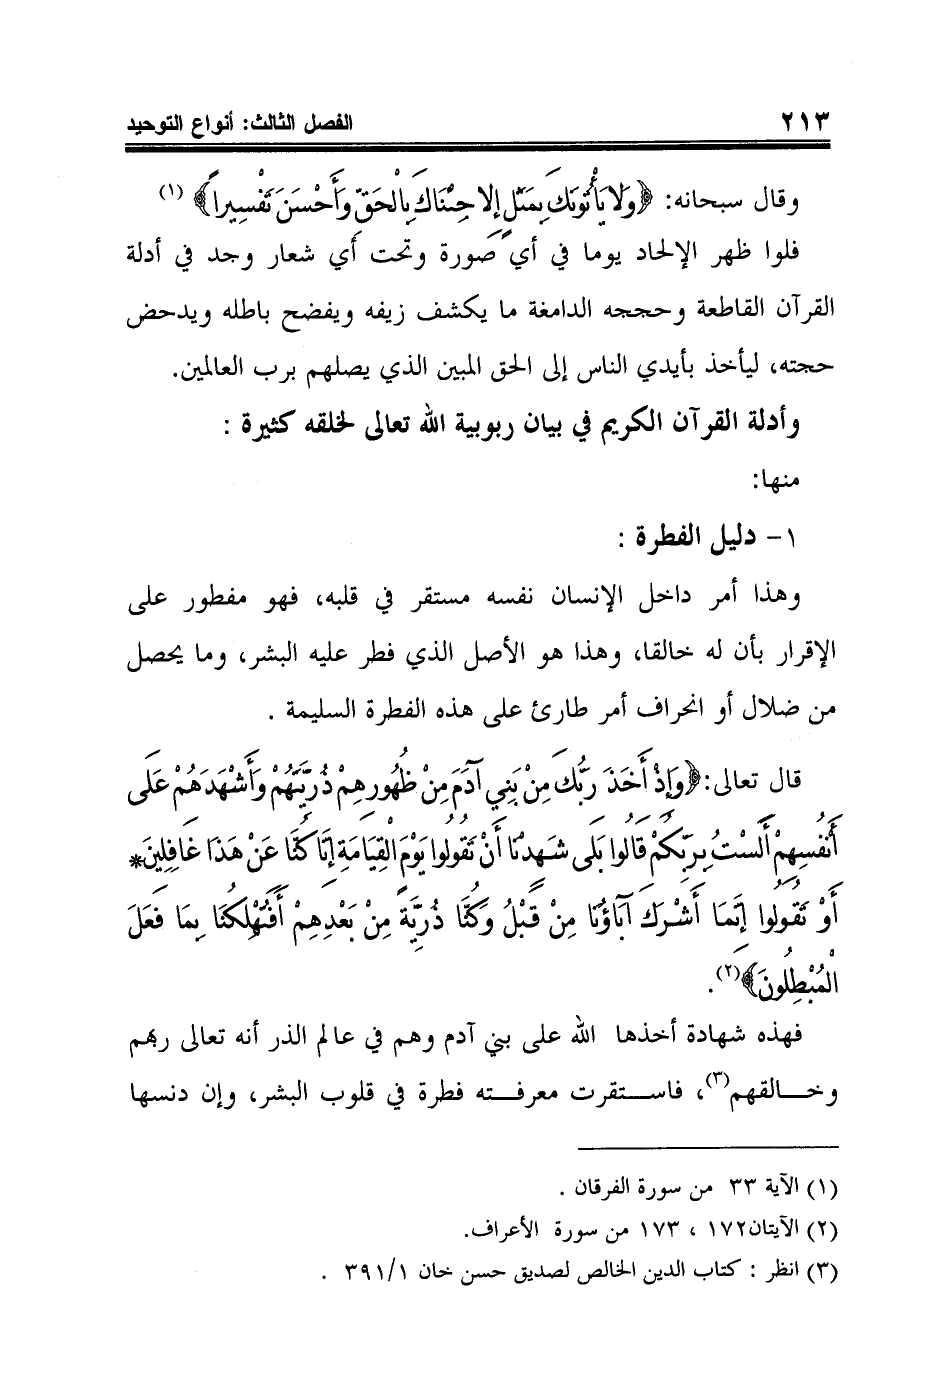 ٢١٣ الفصل الثالث: أنواع التوحيد
وقال سبحانه: ﴿وَلا يَأْتُونَكَ بِمَثَلٍ إِلا جِئْنَاكَ بِالْحَقِّ وَأَحْسَنَ تَفْسِيراً﴾ (١)
فلوا ظهر الإلحاد يوما في أي صورة وتحت أي شعار وجد في أدلة
القرآن القاطعة وحججه الدامغة ما يكشف زيفه ويفضح باطله ويدحض
حجته، ليأخذ بأيدي الناس إلى الحق المبين الذي يصلهم برب العالمين.
وأدلة القرآن الكريم في بيان ربوبية الله تعالى لخلقه كثيرة :
منها:
١- دليل الفطرة :
وهذا أمر داخل الإنسان نفسه مستقر في قلبه، فهو مفطور على
الإقرار بأن له خالقا، وهذا هو الأصل الذي فطر عليه البشر، وما يحصل
من ضلال أو انحراف أمر طارئ على هذه الفطرة السليمة .
قال تعالى: ﴿وَإِذْ أَخَذَ رَبُّكَ مِنْ بَنِي آدَمَ مِنْ ظُهُورِهِمْ ذُرِّيَّتَهُمْ وَأَشْهَدَهُمْ عَلَى
أَنْفُسِهِمْ أَلَسْتُ بِرَبِّكُمْ قَالُوا بَلَى شَهِدْنَا أَنْ تَقُولُوا يَوْمَ الْقِيَامَةِ إِنَّا كُنَّا عَنْ هَذَا غَافِلِينَ*
أَوْ تَقُولُوا إِنَّمَا أَشْرَكَ آبَاؤُنَا مِنْ قَبْلُ وَكُنَّا ذُرِّيَّةً مِنْ بَعْدِهِمْ أَفَتُهْلِكُنَا بِمَا فَعَلَ
الْمُبْطِلُونَ﴾(٢).
فهذه شهادة أخذها الله على بني آدم وهم في عالم الذر أنه تعالى ربهم
وخـــالقهم(٣)، فاســـتقرت معرفـــته فطرة في قلوب البشر، وإن دنسها
(١) الآية ٣٣ من سورة الفرقان .
(٢) الآيتان١٧٢ ، ١٧٣ من سورة الأعراف.
(٣) انظر : كتاب الدين الخالص لصديق حسن خان ٣٩١/١ .